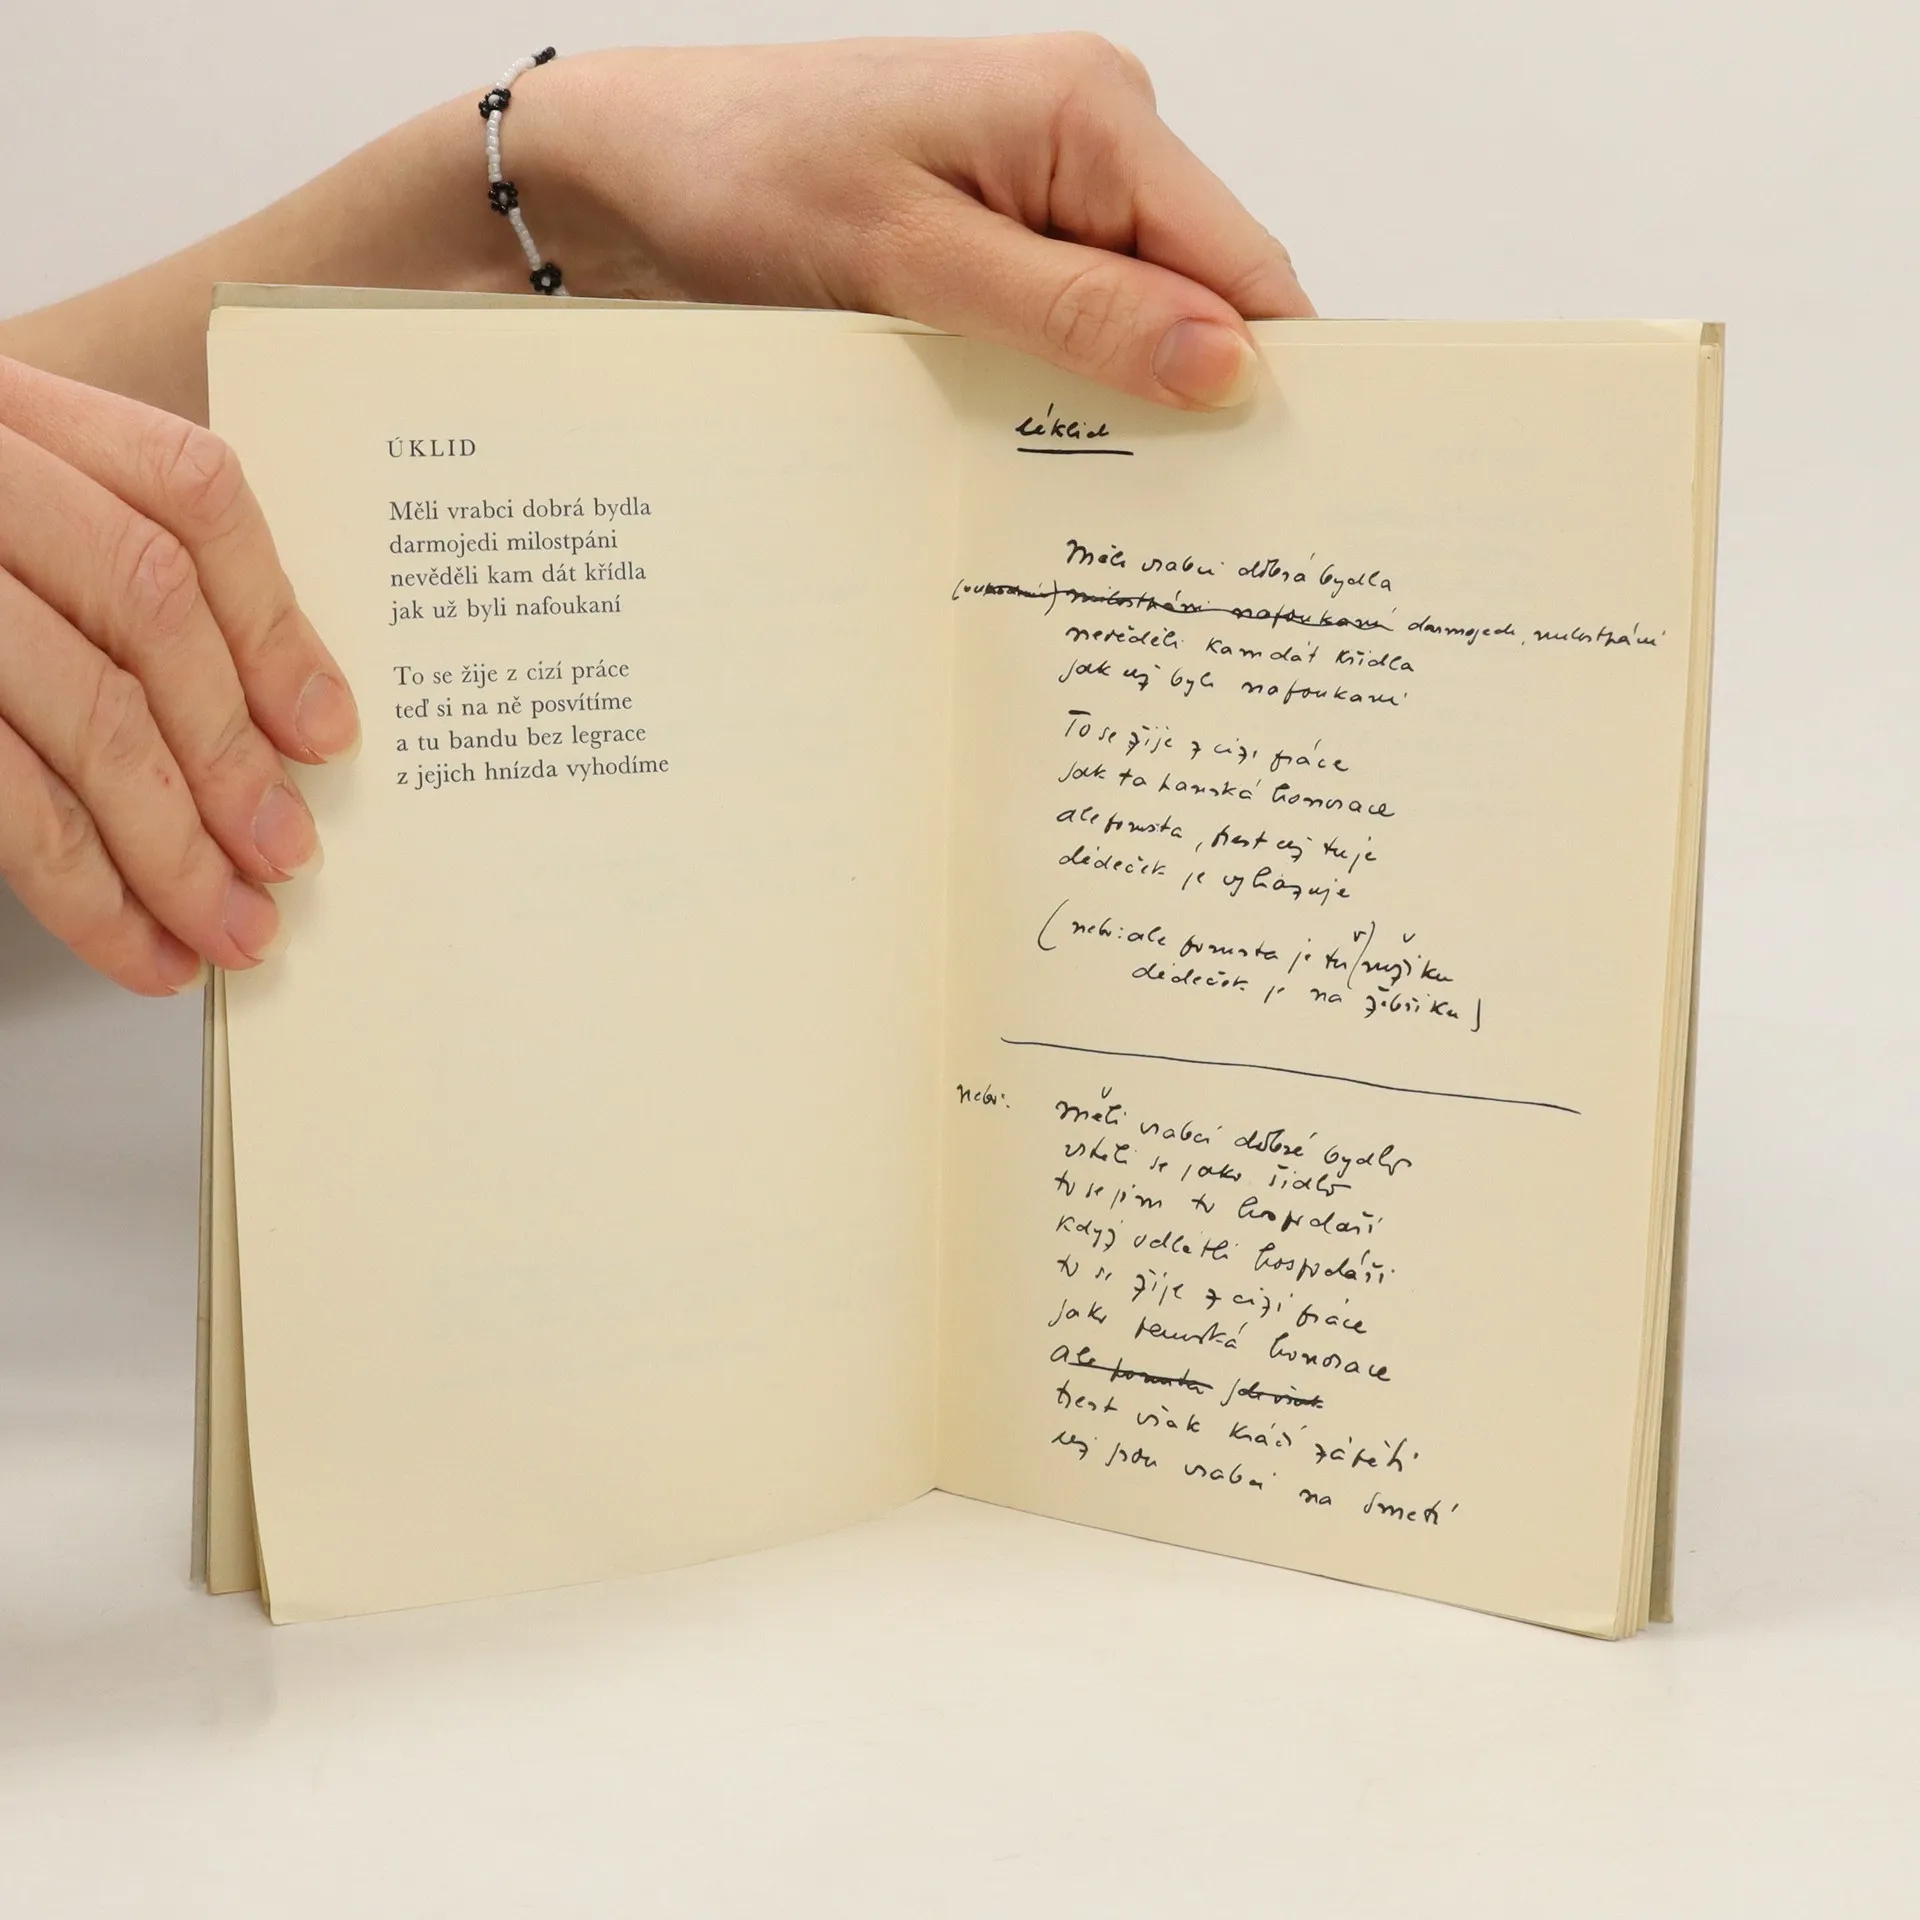 ÚKLID
Měli vrabci dobrá bydla
darmojedi milostpáni
nevěděli kam dát křídla
jak už byli nafoukaní
To se žije z cizí práce
teď si na ně posvítíme
a tu bandu bez legrace
z jejich hnízda vyhodíme
úklid
Měli vrabci dobrá bydla
milostpáni nafoukaní darmojedi, milostpání
nevěděli kam dát křídla
jak už byli nafoukaní
To se žije z cizí práce
jak ta panská honorace
ale pomsta, trest už tu je
dědeček je vyhazuje
(nebo: ale pomsta je tu v mžiku
dědeček je na žebříku)
nebo:
Měli vrabci dobré bydlo
vrtěli se jako šídlo
to se jim to hospodaří
když odlétli hospodáři
to se žije z cizí práce
jako panská honorace
ale pomsta jde však
trest však kráčí zápětí
už jsou vrabci na smetí